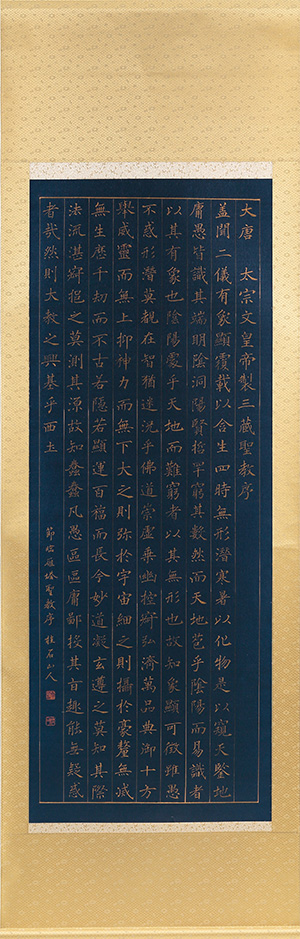 大唐 太宗文皇帝製三藏聖教序
蓋聞二儀有象顯覆載以含生四時無形潛寒暑以化物是以窺天鑒地
庸愚皆識其端明陰洞陽賢哲罕窮其數然而天地苞乎陰陽而易識者
以其有象也陰陽處乎天地而難窮者以其無形也故知象顯可徵雖愚
不惑形潛莫覩在智猶迷況乎佛道崇虛乘幽控寂弘濟萬品典御十方
舉威靈而無上抑神力而無下大之則弥於宇宙細之則攝於豪釐無滅
無生歷千劫而不古若隱若顯運百福而長今妙道凝玄遵之莫知其際
法流湛寂挹之莫測其源故知蠢蠢凡愚區區庸鄙投其旨趣能無疑惑
者哉然則大教之興基乎西土
節臨雁塔聖教序 桂石山人